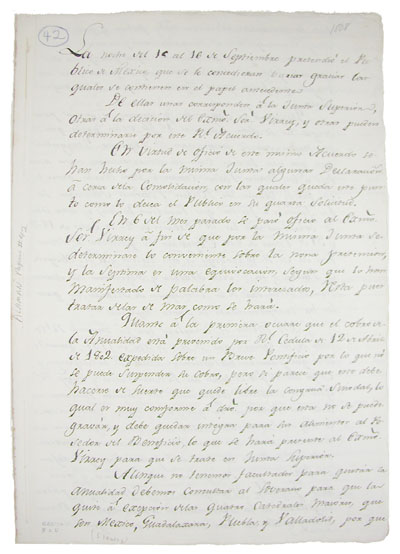 42
1808
La noche del 15 al 16 de Septiembre pretendió el Pu-
blico de Mexico que se le concedieran varias gracias las
quales se contienen en el papel antecedente.
De ellas unas corresponden á la Junta Superior,
otras á la decision del Exmo. Sor. Virrey, y otras puede
determinarlas por este Rl. Acuerdo.
En virtud de oficio de este mismo Acuerdo se
han hecho por la misma Junta algunas Declaraciones
á cerca de la Consolidacion, con las quales queda este pun-
to como lo desea el Publico en su quarta solicitud.
En 6 del mes pasado se pasó oficio al Exmo.
Sor. Virrey á fin de que por la misma Junta se
determinare lo conveniente sobre la nona pretension,
y la septima es una equivocacion, segun que lo han
manifestado de palabra los interesados,
tratar de las de mas, como se hará.
Quante á la primera ocurre que el cobro de
la Anualidad está prevenido por Rl. Cedula de 12 de Abril
de 1802 expedida sobre un Breve Pontificio por lo que no
se puede suspender su cobro, pero si parece que este debe
hacerse de suerte que quede libre la congrua Sinodal, lo
qual es muy conforme á dro. por que esta no se puede
gravar, y debe quedar integra para los alimentos al Po-
seedor del Beneficio, lo que se hará presente al Exmo.
Virrey para que se trate en Junta Superior.
Aunque no tenemos facultades para quitar la
anualidad debemos consultar al Soberano para que la
quite á excepcion de las quatro Catedrales mayores, que
son Mexico, Guadalaxara, Puebla, y Valladolid, por que